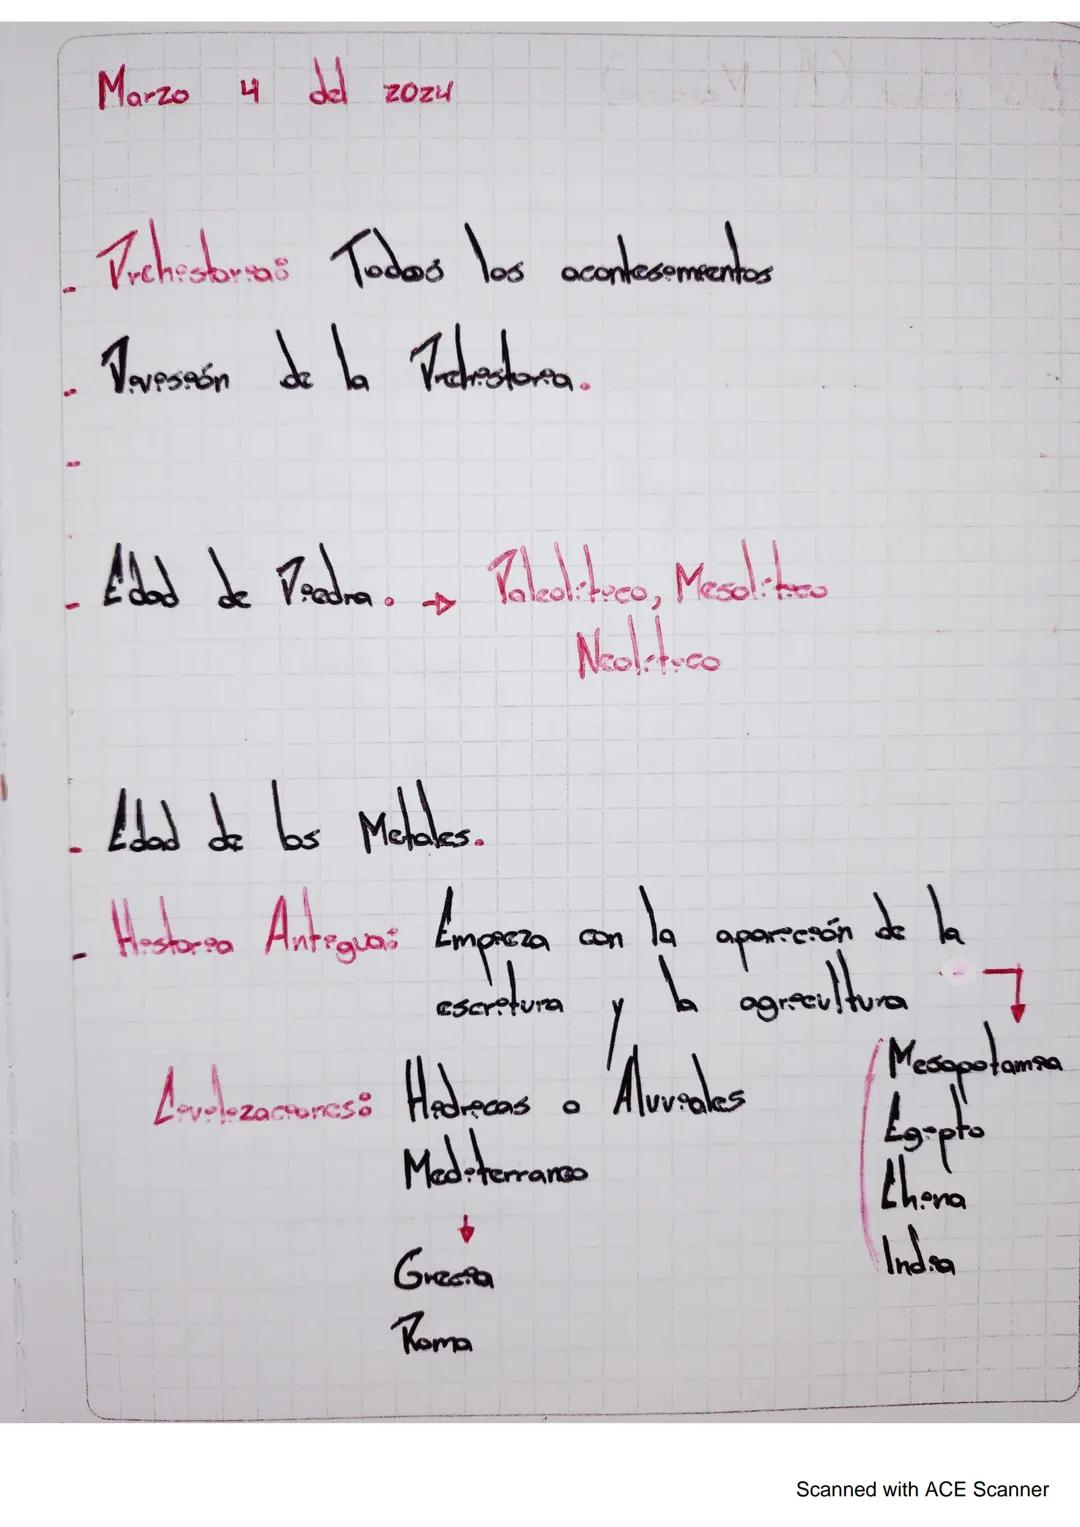 Marzo 4 del 2024
- Prehistoria: Todos los acontesimientos
- División de la Prehistoria.
-
- Edad de Piedra. → Paleolitico, Mesolitico
Neolitico
- Edad de los Metales.
- Historia Antigua: Empieza con la aparición de la
escritura y la agricultura
Civilizaciones: Hidricas o Aluviales
Mediterraneo
↓
Grecia
Roma
Mesopotamia
Egipto
China
India
Scanned with ACE Scanner